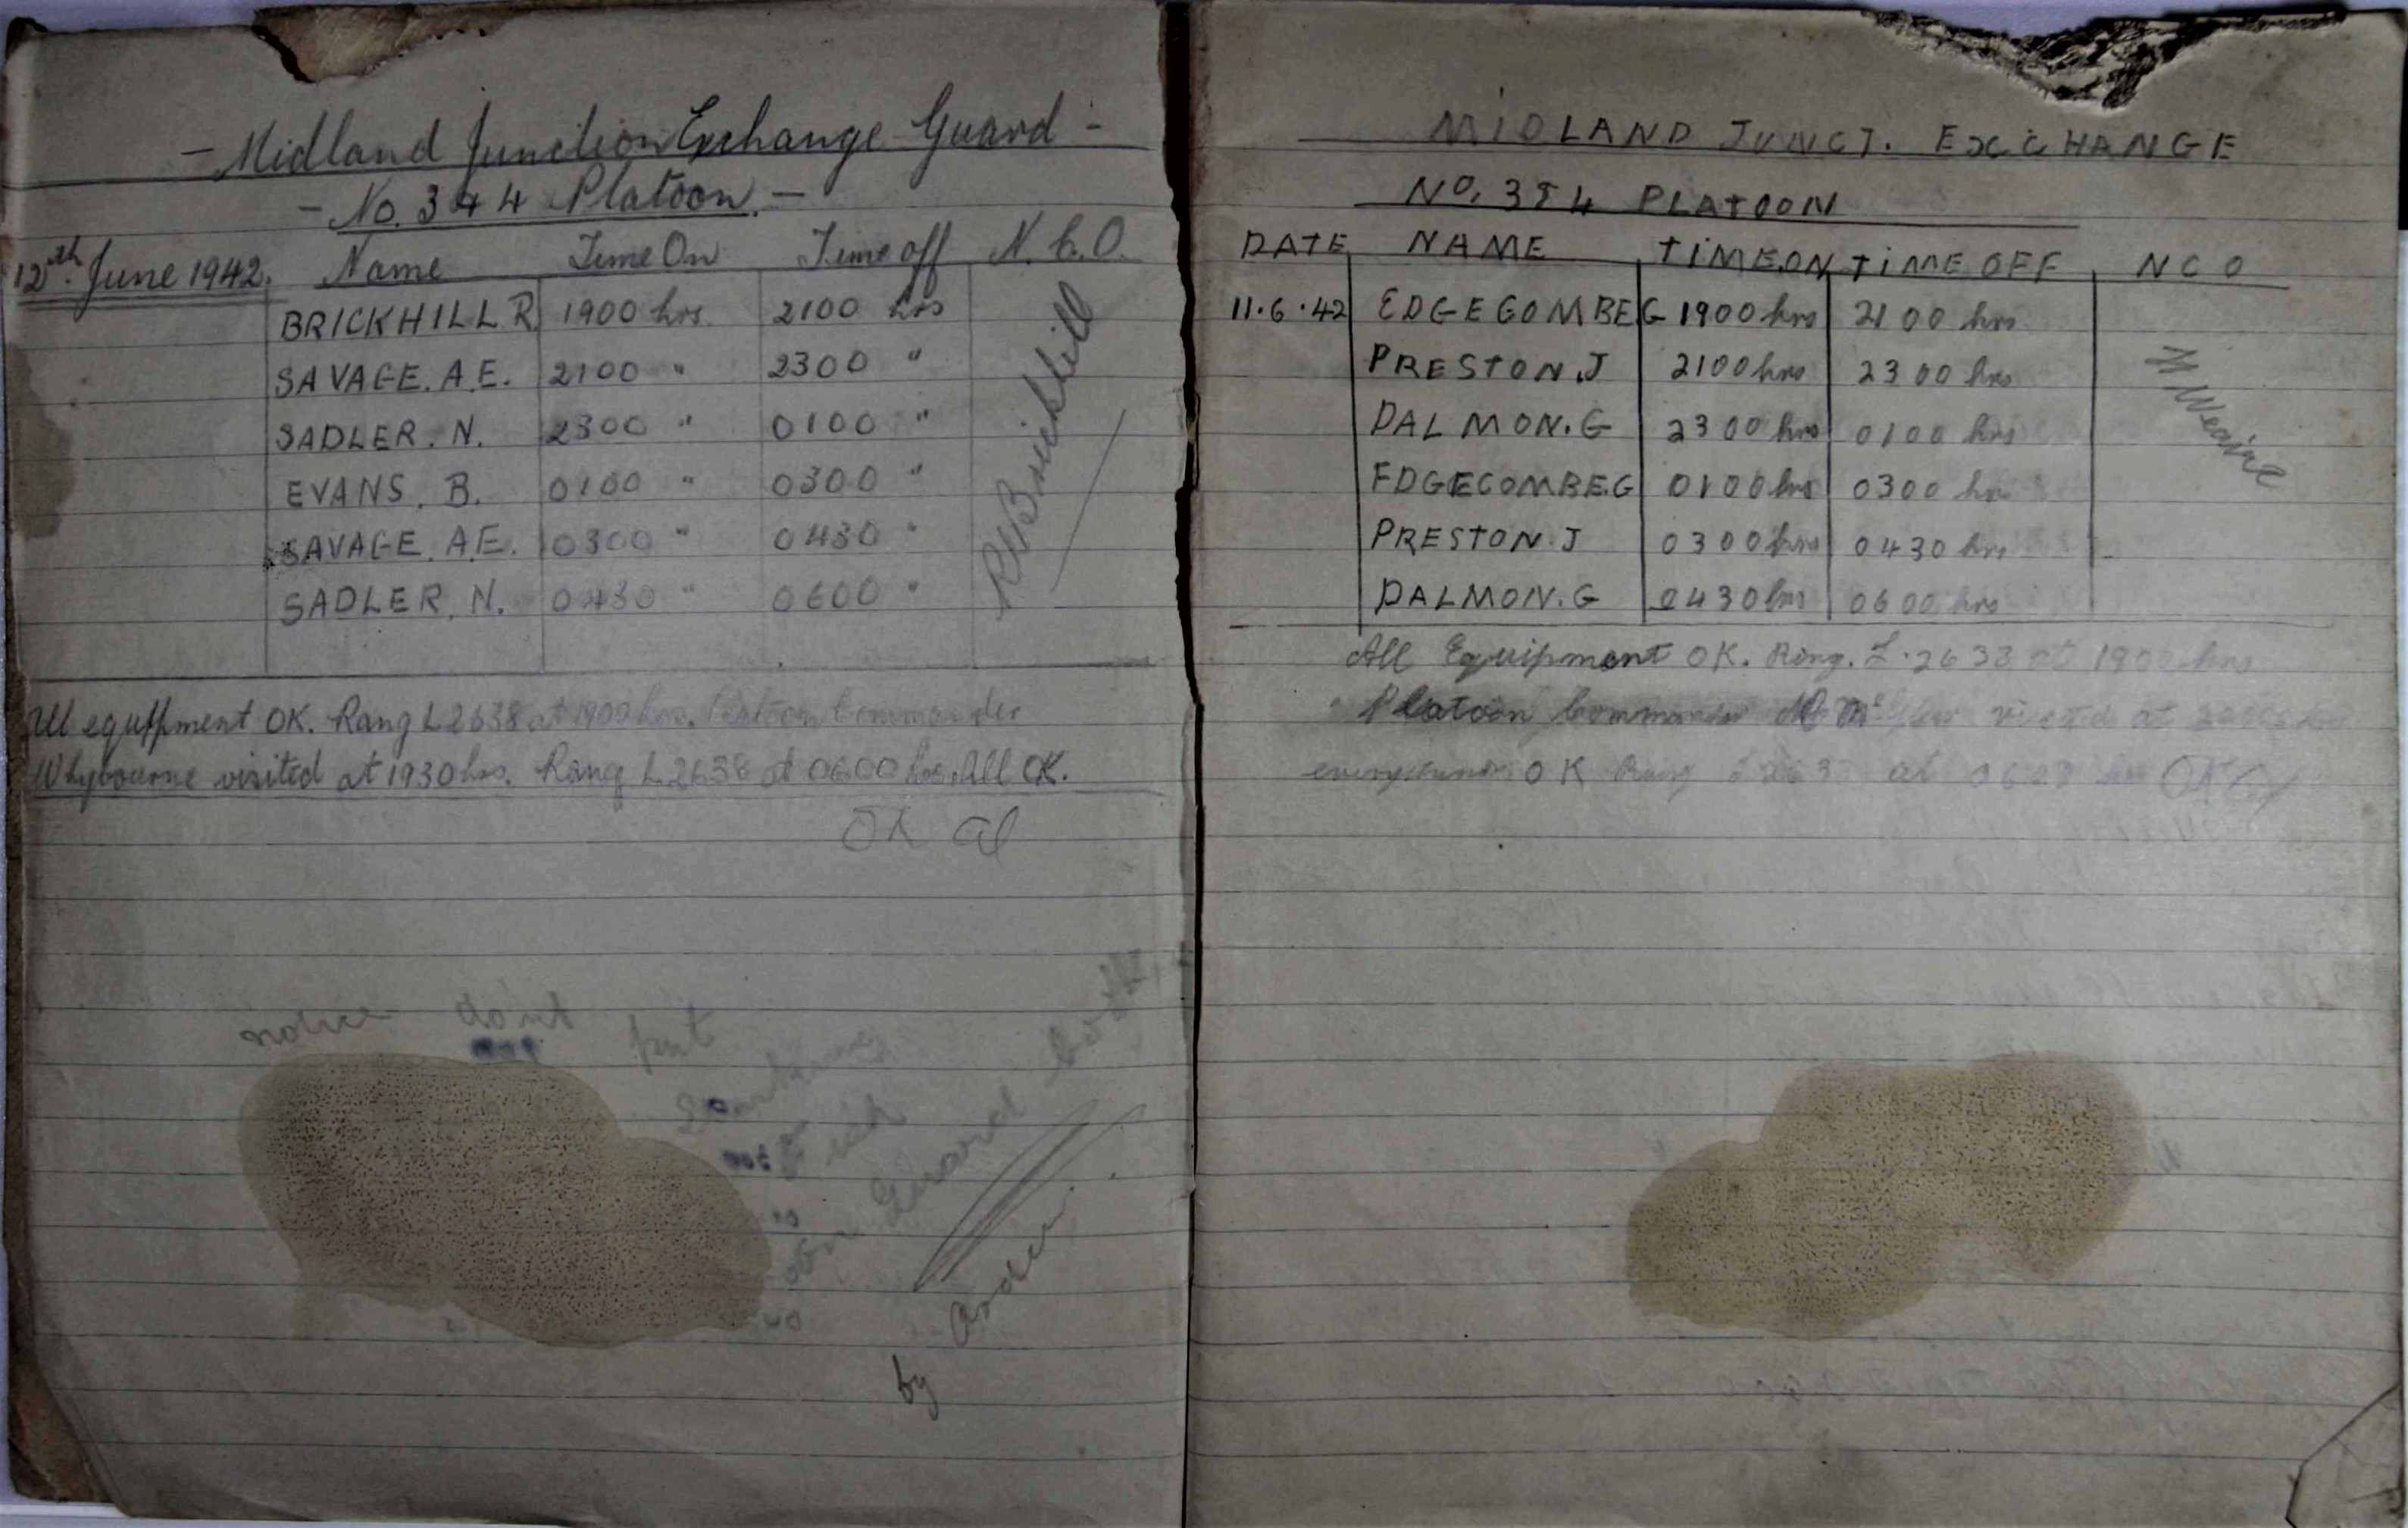 - Midland Junction Exchange Guard -
- No. 344 Platoon. -
12th. June 1942. Name Time On Time off N.C.O.
BRICKHILL. R. 1900 hrs. 2100 hrs
SAVAGE. A.E. 2100 " 2300 "
SADLER. N. 2300 " 0100 "
EVANS. B. 0100 " 0300 "
SAVAGE. A.E. 0300 " 0430 "
SADLER. N. 0430 " 0600 "
RWBrickhill
All equipment OK. Rang L2638 at 1900 hrs. Platoon Commander
Whybourne visited at 1930 hrs. Rang L2638 at 0600 hrs. All OK.
OK
notice dont put
on Guard book
by order.
MIDLAND JUNCT. EXCHANGE
NO. 354 PLATOON
DATE NAME TIME ON TIME OFF NCO
11.6.42 EDGECOMBE G 1900 hrs 2100 hrs
PRESTON. J 2100 hrs 2300 hrs
DALMON. G 2300 hrs 0100 hrs
EDGECOMBE. G 0100 hrs 0300 hrs
PRESTON. J 0300 hrs 0430 hrs
DALMON. G 0430 hrs 0600 hrs
All Equipment OK. Ring. L.2633 at 1900 hrs
Platoon Commander visited at
OK at